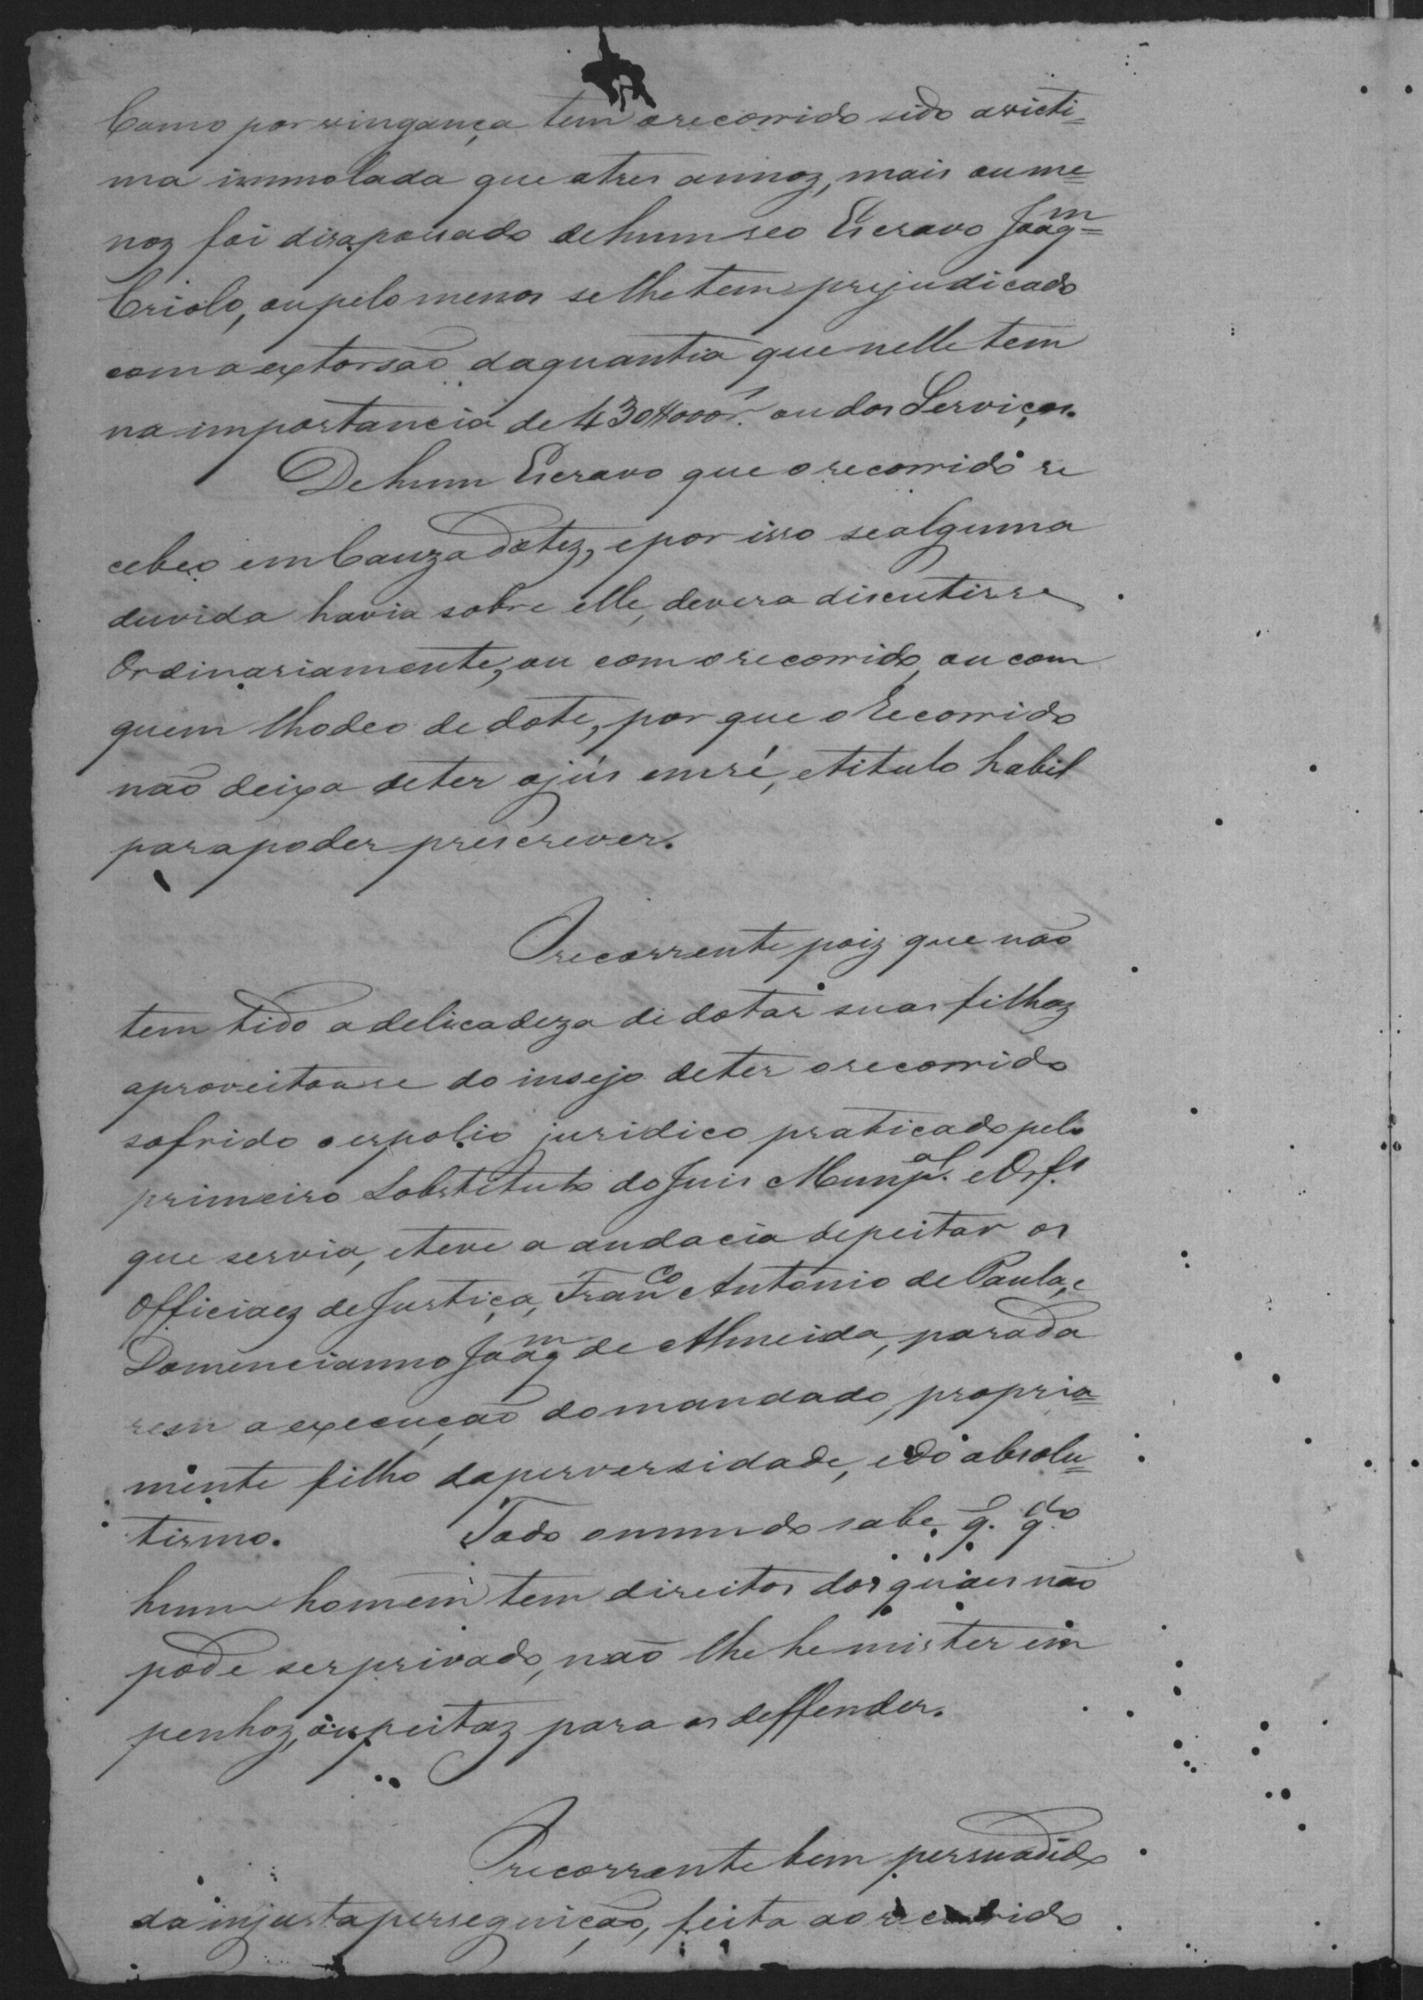 Como por vingança tem o recorrido sido a victi=
ma immolada que a tres annoz, mais ou me=
noz foi disapossado de hum seo Escravo Joaqm=
Criolo, ou pelo menos se lhe tem prejudicado
com a extorsão da quantia que nelle tem
na importancia de 430$000rs. ou dos Serviços.
De hum Escravo que o recorrido re
cebeo em Cauza dotez, e por isso se alguma
duvida havia sobre elle, devera discutirse
Ordinariamente, ou com o recorrido, ou com
quem lho deo de dote, por que o Recorrido
não deixa de ter o jús em ré, e titulo habil
para poder prescrever.
O recorrente poiz que não
tem tido a delicadeza de dotar suas filhaz
aproveitouse do insejo de ter o recorrido
sofrido o espolio juridico praticado pelo
primeiro Sobstituto do Juis Munpal. e Orfs.
que servia, e teve a audacia de peitar os
Officiaez de Justiça, Franco Antonio de Paula, e
Domencianno Joaqm de Almeida, para da
rem a execução do mandado, propria=
mente filho da perversidade, e do absolu=
tismo. Todo o mundo sabe, q. qdo
hum homem tem direitos dos quaes não
pode ser privado, não lhe he mister em
penhoz, ou peitaz para os deffender.
O recorrente bem persuadido
da injusta perseguição, feita ao recorrido